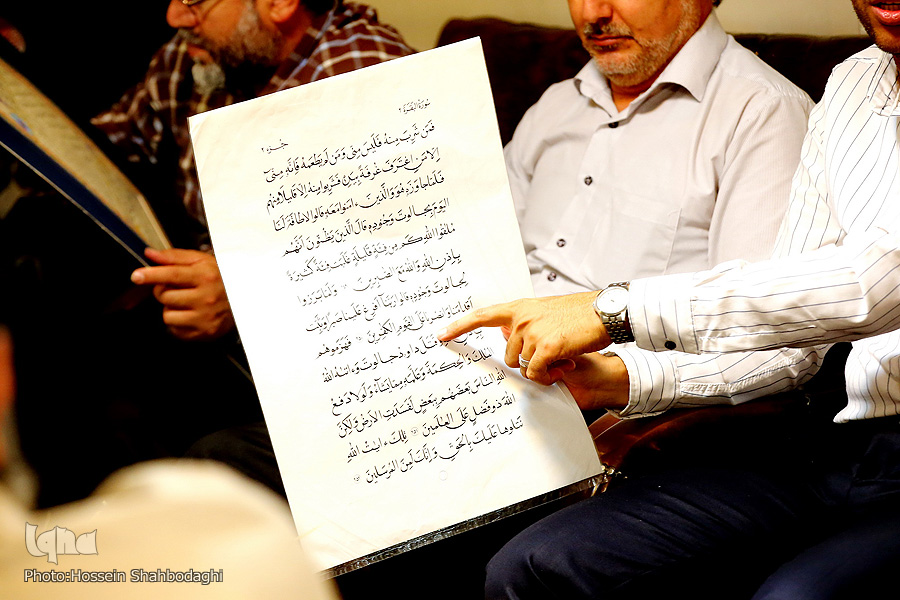 سُورَةُ البَقَرَة ٢
جزء ٢
فَمَن شَرِبَ مِنهُ فَلَيسَ مِنّى وَمَن لَم يَطعَمهُ فَإِنَّهُ مِنّى
إِلّا مَنِ اغتَرَفَ غُرفَةً بِيَدِهِ فَشَرِبوا مِنهُ إِلّا قَليلًا مِنهُم
فَلَمّا جاوَزَهُ هُوَ وَالَّذينَ ءامَنوا مَعَهُ قالوا لا طاقَةَ لَنَا
اليَومَ بِجالوتَ وَجُنودِهِ قالَ الَّذينَ يَظُنّونَ أَنَّهُم
مُلٰقُوا اللّٰهِ كَم مِن فِئَةٍ قَليلَةٍ غَلَبَت فِئَةً كَثيرَةً
بِإِذنِ اللّٰهِ وَاللّٰهُ مَعَ الصّٰبِرينَ ٢٤٩ وَلَمّا بَرَزوا
لِجالوتَ وَجُنودِهِ قالوا رَبَّنا أَفرِغ عَلَينا صَبرًا وَثَبِّت
أَقدامَنا وَانصُرنا عَلَى القَومِ الكٰفِرينَ ٢٥٠ فَهَزَموهُم
وَقَتَلَ داوۥدُ جالوتَ وَءاتىٰهُ اللّٰهُ
المُلكَ وَالحِكمَةَ وَعَلَّمَهُ مِمّا يَشاءُ وَلَولا دَفعُ
اللّٰهِ النّاسَ بَعضَهُم بِبَعضٍ لَفَسَدَتِ الأَرضُ وَلٰكِنَّ
اللّٰهَ ذو فَضلٍ عَلَى العٰلَمينَ ٢٥١ تِلكَ ءايٰتُ اللّٰهِ
نَتلوها عَلَيكَ بِالحَقِّ وَإِنَّكَ لَمِنَ المُرسَلينَ ٢٥٢
iqna
Photo:Hossein Shahbodaghi